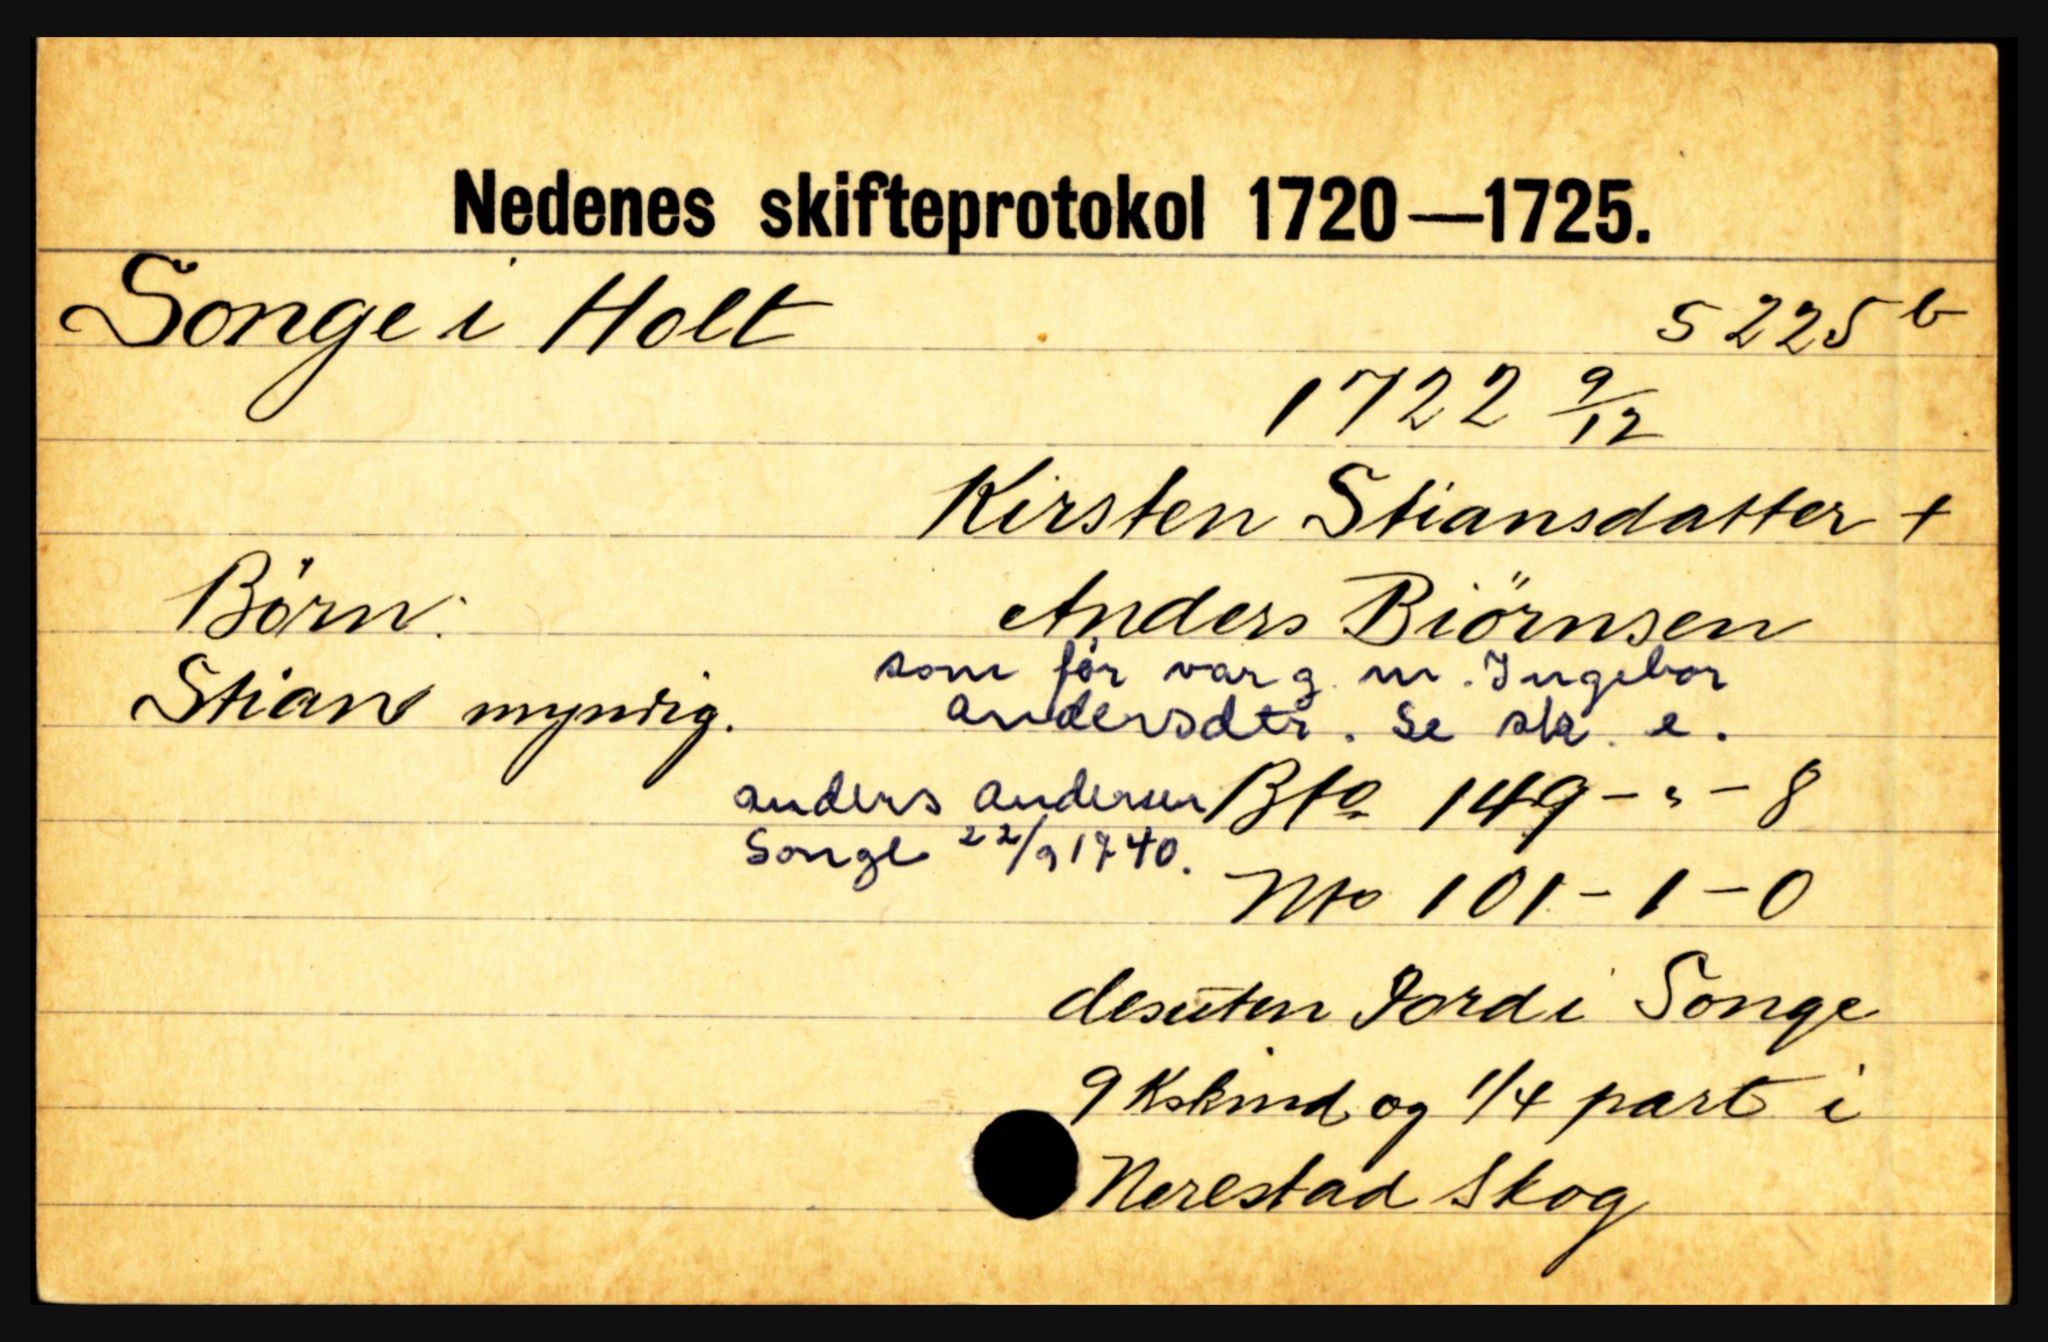 Nedenes skifteprotokol 1720—1725.
Songe i Holt
S 225 b
1722 9/12
Kirsten Stiansdatter +
Børn:
Anders Biörnsen
som før var g. m. Ingebor
Andersdtr. Se sk. e.
Stians myndig.
anders andersen
Songe 22/9 1740.
Bto 149-"-8
Nto 101-1-0
desuten Jord i Songe
9 Kskind og 1/4 part i
Nerestad Skog